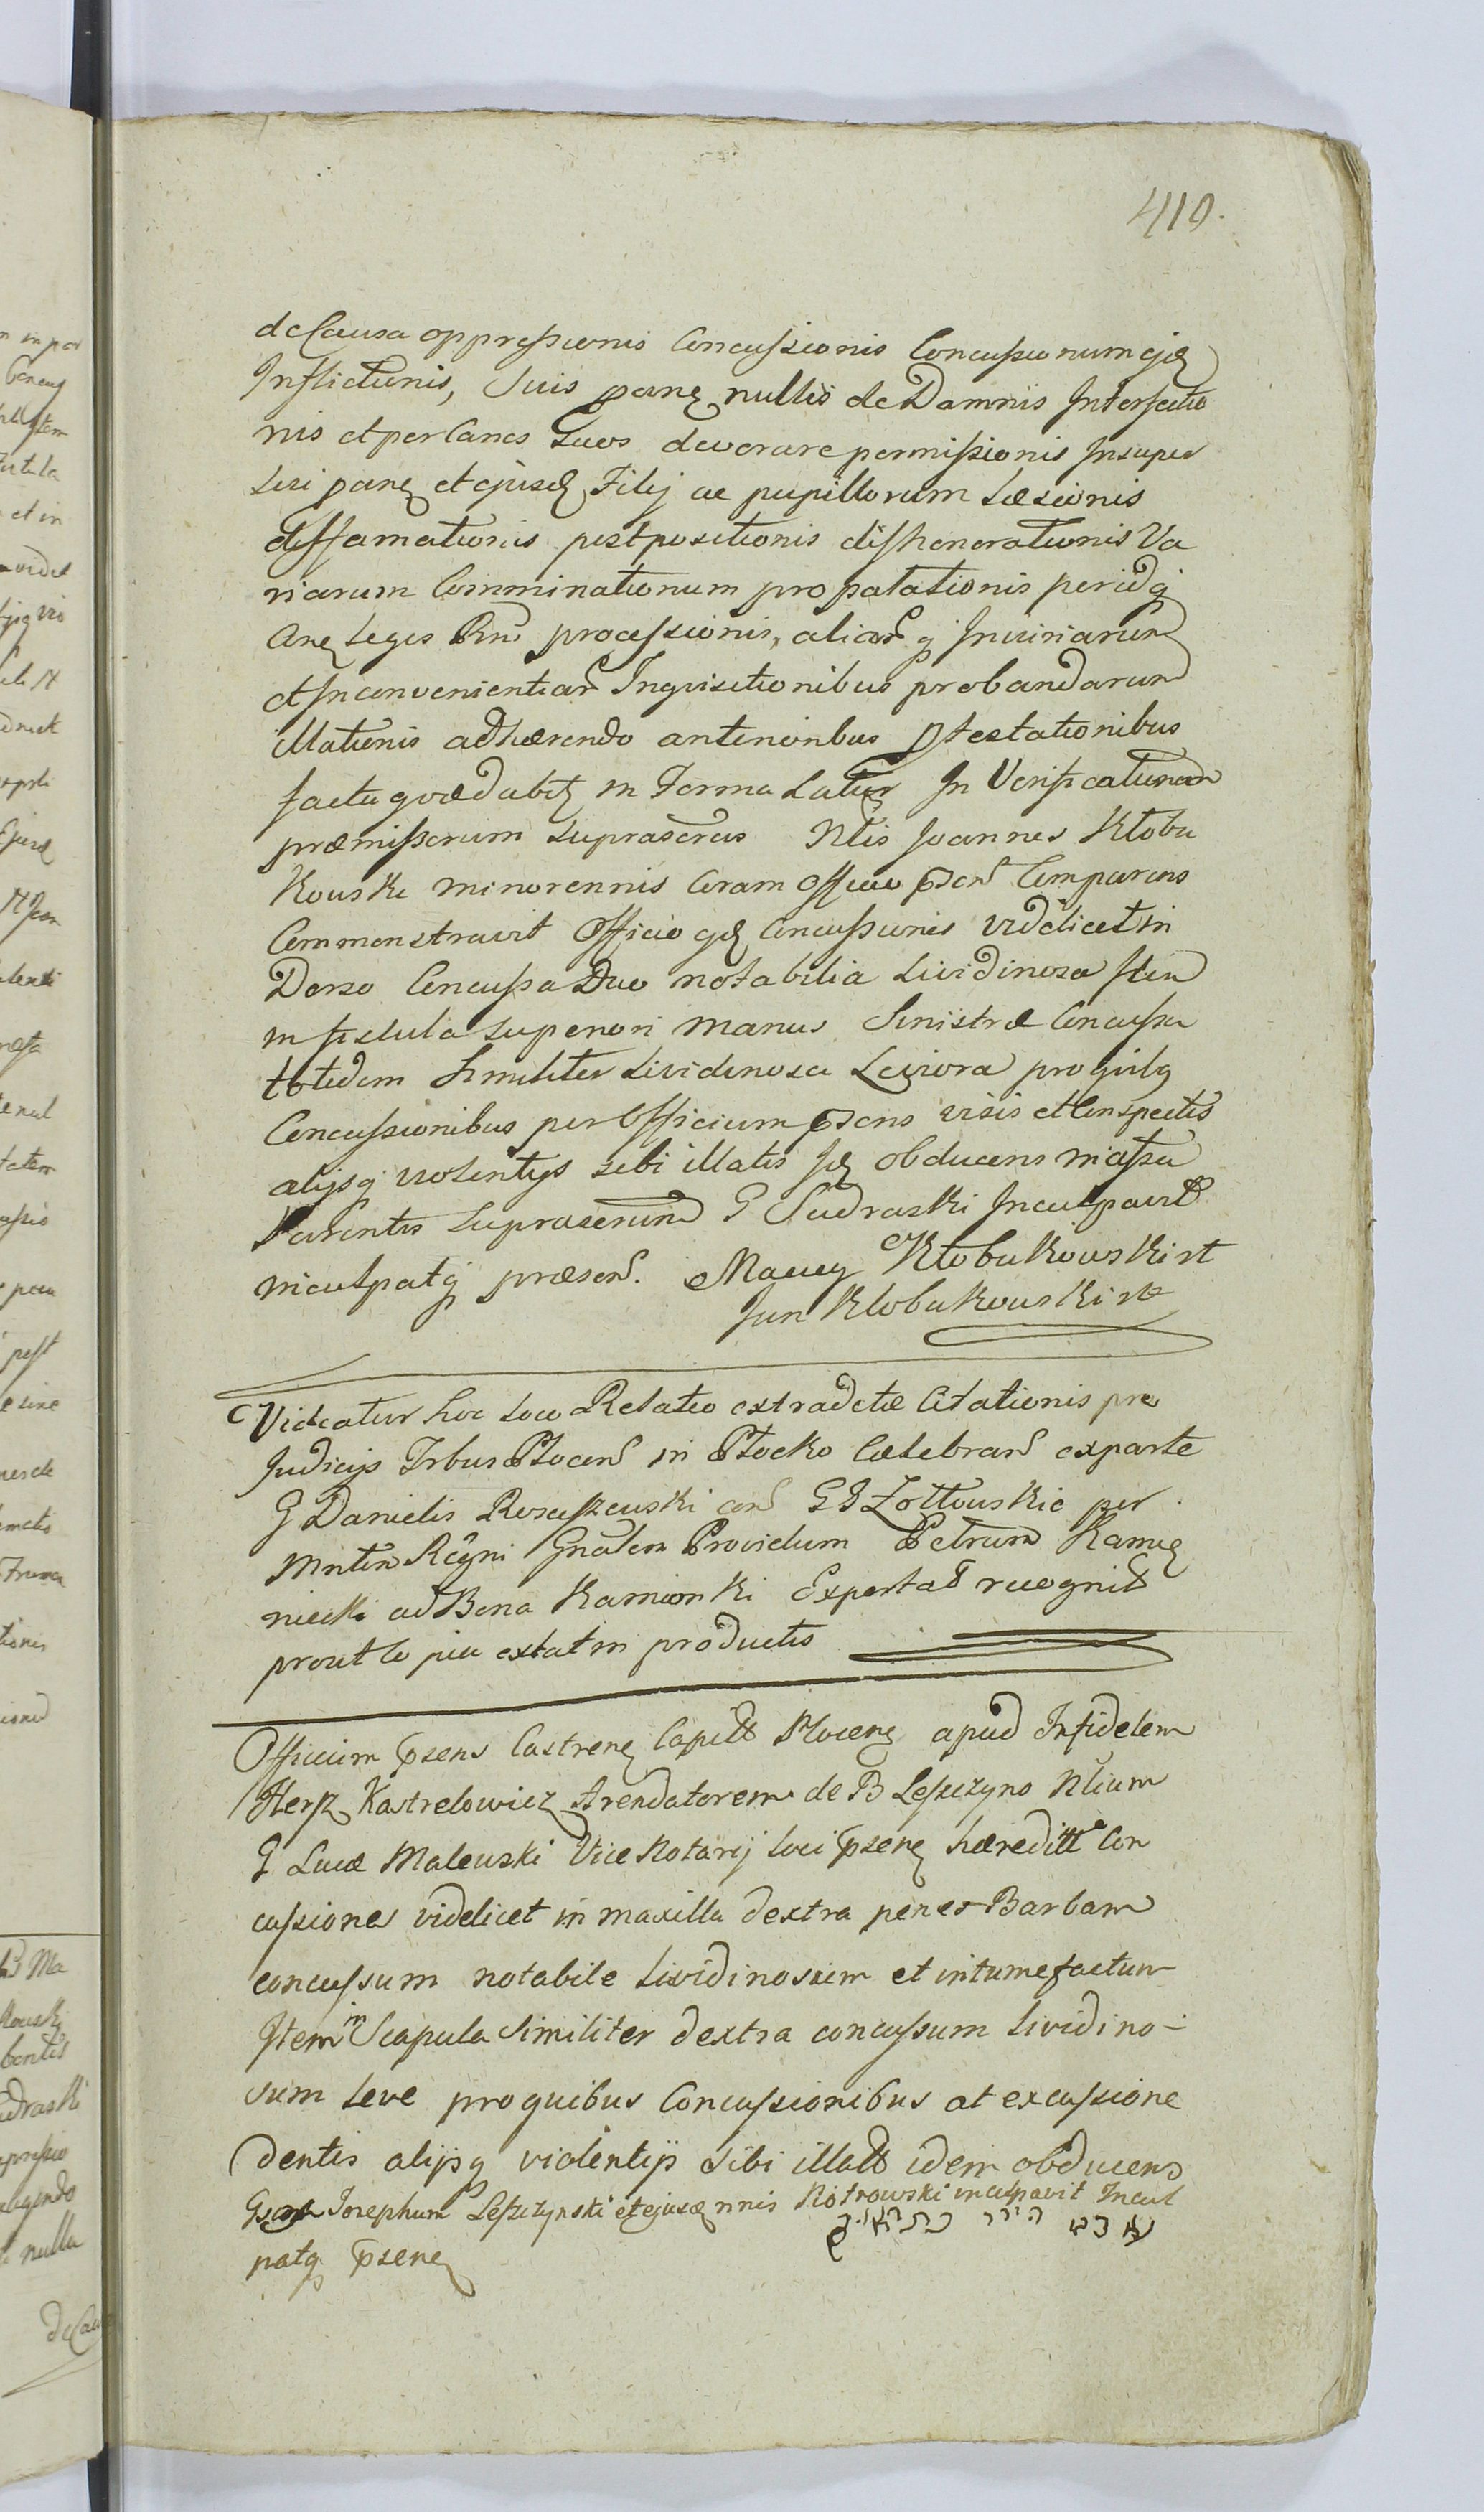 410.
de Causa oppressionis Concussionis Concussionumq̃
Inflictionis, Suis nullis de Damnis Interfectio
nis et per Canes Suos devorare permissionis Insuper
Sui et ejusd Filij ac pupillorum Læsionis
diffamationis postpositionis dishonorationis Va
riarum Comminationum propalationis periculiq
Legis processionis, aliarq Iniuriarum
et Inconvenientiar Inquisitionibus probandarum
illationis adhærendo anterioribus Ptestationibus
factaq in Forma Latiori In Verificationem
præmissorum Suprascrius Nlis Joannes Kłobu
kowski minorennis Coram Officio Comparens
Commonstravit Officio Concussiones videlicet in
Dorso Concussa Duo notabilia Lividinosa Item
in fistula Superiori manus Sinistræ Concussa
totidem Similiter Lividinosa Leviora pro quibq
Concussionibus per Officium visis et Conspectis
alijsq violentijs sibi illatis obducens
Parentis Suprascriptum G Sudraski Inculpavit
inculpatq præsens. Maciey Kłobukowski
Jan Kłobukowski
Videatur hoc loco Relatio extraditæ Citationis pro
Judicijs Trbus Płocens in Płocko Celebran ex parte
G Danielis Rosciszewski GG Zołtowskie per
Mntem Regni Gnalem Providum Petrum Kamię
niecki ad Bona Kamionki Exportat recognit
prout Copia extat in productis
Officium psens Castrene Capitt Plocens apud Infidelem
Hersz Kastrelowicz Arendatorem de B Leszczyno Nlium
G Lucæ Malewski Vice Notarij loci psens hæreditt Con
cussiones videlicet in maxilla dextra penes Barbam
concussum notabile Lividinosum et intumefactum
Item in Scapula Similiter dextra concussum Lividino-
sum Leve pro quibus Concussionibus at excussione
dentis alijsq violentijs sibi illatt idem obducens
Josephum Leszczynski et ejusd nnis Kotrowski inculpavit Incul
patq psens